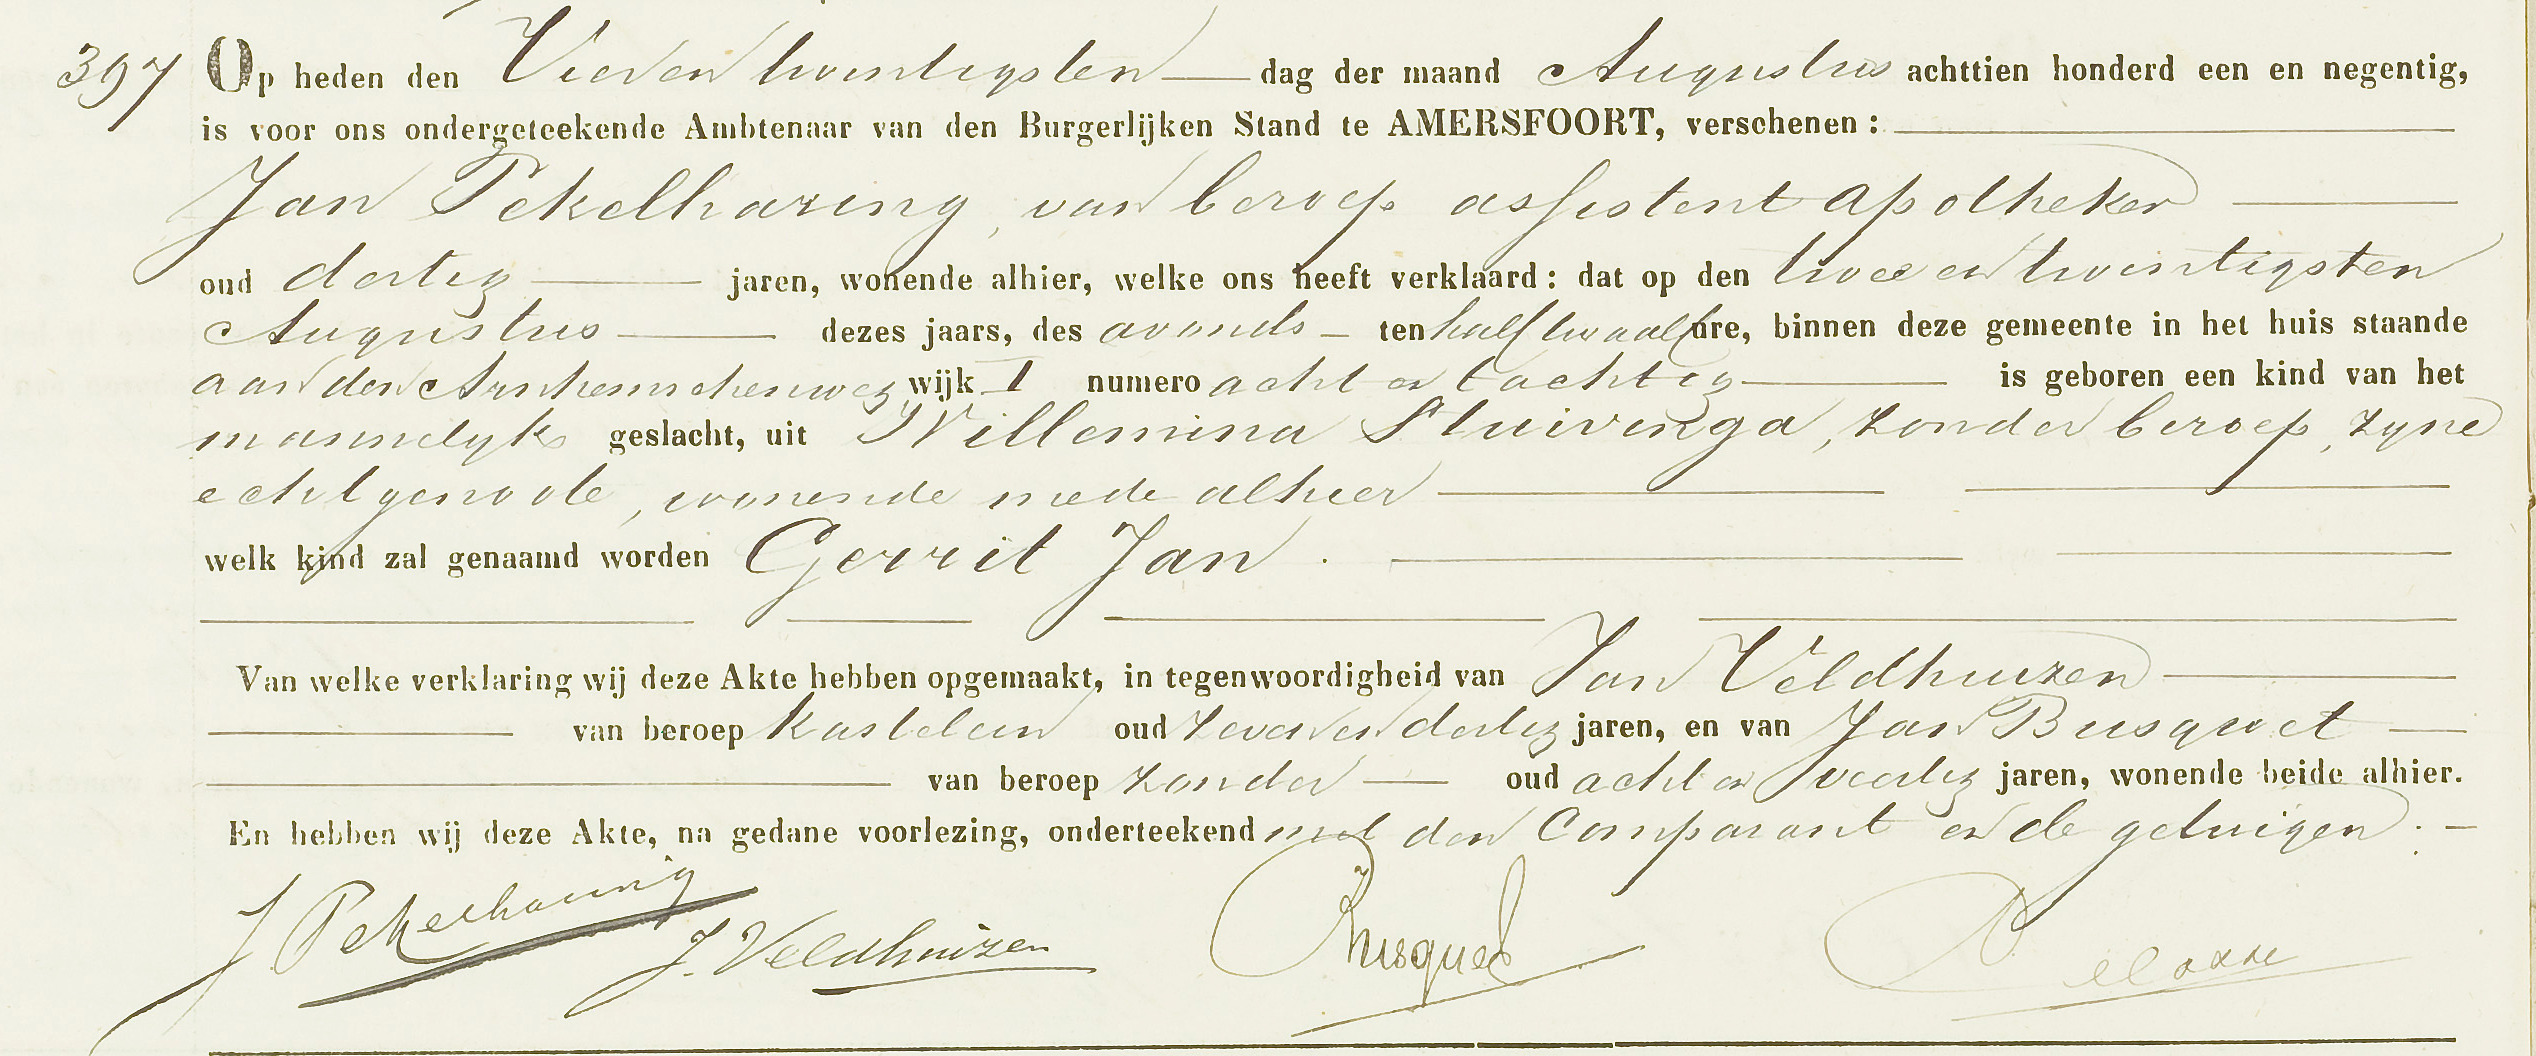 397 Op heden den Vier en twintigsten dag der maand Augustus achttien honderd een en negentig,
is voor ons ondergeteekende Ambtenaar van den Burgerlijken Stand te AMERSFOORT, verschenen:
Jan Pekelharing, van beroep assistent apotheker
oud dertig jaren, wonende alhier, welke ons heeft verklaard: dat op den twee en twintigsten
Augustus dezes jaars, des avonds ten half twaalf ure, binnen deze gemeente in het huis staande
aan den Arnhemschenweg wijk I numero acht en tachtig is geboren een kind van het
mannelyk geslacht, uit Willemina Stuivinga, zonder beroep, zyne
echtgenoote, wonende mede alhier
welk kind zal genaamd worden Gerrit Jan.
Van welke verklaring wij deze Akte hebben opgemaakt, in tegenwoordigheid van Jan Veldhuizen
van beroep kastelein oud zeven en dertig jaren, en van Jan Busquet
van beroep zonder oud acht en veertig jaren, wonende beide alhier.
En hebben wij deze Akte, na gedane voorlezing, onderteekend met den Comparant en de getuigen.
J Pekelharing J. Veldhuizen Busquet